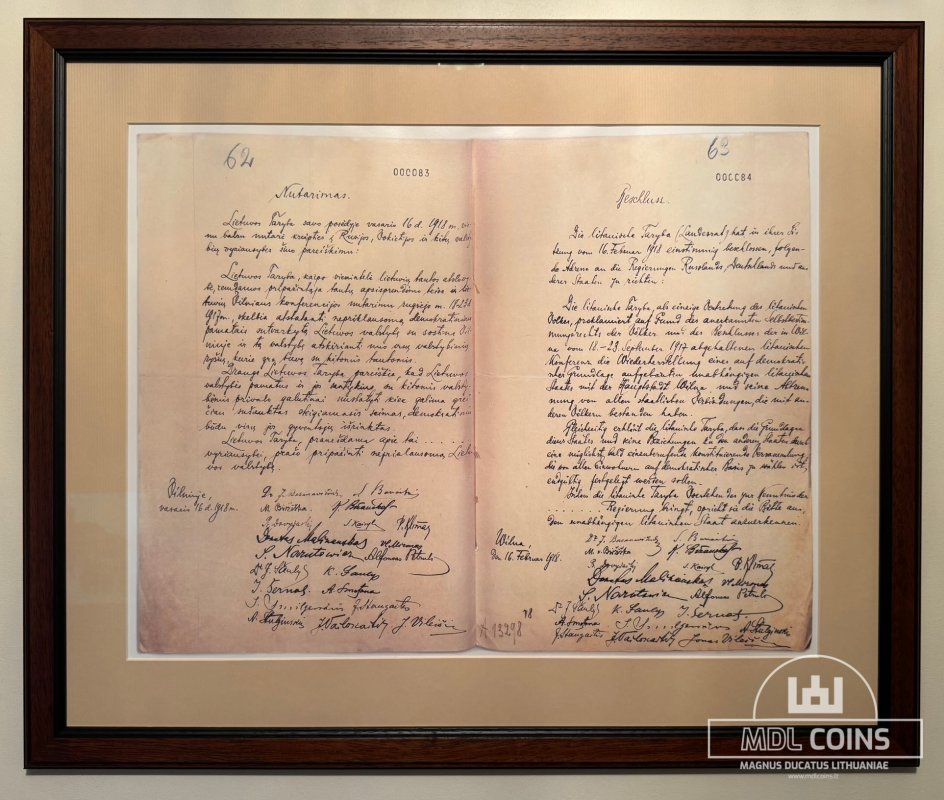 62
000083
Nutarimas.
Lietuvos Taryba savo posėdyje vasario 16 d. 1918 m. vie-
nu balsu nutarė kreiptis į Rusijos, Vokietijos ir kitų valsty-
bių vyriausybes šiuo pareiškimu:
Lietuvos Taryba, kaipo vienintelė lietuvių tautos atstovy-
bė, remdamos pripažintąja tautų apsisprendimo teise ir lie-
tuvių Vilniaus konferencijos nutarimu rugsėjo m. 18-23 d.
1917 m., skelbia atstatanti nepriklausomą demokratiniais
pamatais sutvarkytą Lietuvos valstybę su sostine Vil-
niuje ir tą valstybę atskirianti nuo visų valstybinių
ryšių, kurie yra buvę su kitomis tautomis.
Drauge Lietuvos Taryba pareiškia, kad Lietuvos
valstybės pamatus ir jos santykius su kitomis valsty-
bėmis privalo galutinai nustatyti kiek galima grei-
čiau sušauktas steigiamasis seimas, demokratiniu
būdu visų jos gyventojų išrinktas.
Lietuvos Taryba, pranešdama apie tai . . . . . .
vyriausybei, prašo pripažinti nepriklausomą Lietu-
vos valstybę.
Vilniuje,
vasario 16 d. 1918 m.
Dr. J. Basanavičius S. Banaitis
M. Biržiška K. Bizauskas
P. Dovydaitis S. Kairys P. Klimas
Donatas Malinauskas Vl. Mironas
S. Narutowicz Alfonsas Petrulis
Dr. J. Šaulys K. Šaulys
J. Šernas A. Smetona
J. Staugaitis
A. Stulginskis J. Vailokaitis J. Vileišis
№ 13298
63
000084
Beschluss.
Die litauische Taryba (Landesrat) hat in ihrer Sit-
zung vom 16. Februar 1918 einstimmig beschlossen, folgen-
de Adresse an die Regierungen Russlands, Deutschlands und an-
derer Staaten zu richten:
Die litauische Taryba, als einzige Vertretung des litauischen
Volkes, proklamiert auf Grund des anerkannten Selbstbestim-
mungsrechts der Völker und des Beschlusses der in Wil-
na vom 18.-23. September 1917 abgehaltenen litauischen
Konferenz die Wiederherstellung eines auf demokrati-
scher Grundlage aufgebauten unabhängigen litauischen
Staates mit der Hauptstadt Wilna und seine Abtren-
nung von allen staatlichen Verbindungen, die mit an-
deren Völkern bestanden haben.
Gleichzeitig erklärt die litauische Taryba, dass die Grundlagen
dieses Staates und seine Beziehungen zu den anderen Staaten durch
eine möglichst bald einzuberufende konstituierende Versammlung,
die von allen Einwohnern auf demokratischer Basis zu wählen ist,
endgiltig festgelegt werden sollen.
Indem die litauische Taryba Vorstehendes zur Kenntnis der
. . . . . . . Regierung bringt, spricht sie die Bitte aus,
den unabhängigen litauischen Staat anzuerkennen.
Wilna,
den 16. Februar 1918.
Dr. J. Basanavičius S. Banaitis
M. Biržiška K. Bizauskas
P. Dovydaitis S. Kairys P. Klimas
Donatas Malinauskas Vl. Mironas
S. Narutowicz Alfonsas Petrulis
Dr. J. Šaulys K. Šaulys J. Šernas
A. Smetona A. Stulginskis
J. Staugaitis J. Vailokaitis Jonas Vileišis
78
MDL COINS
MAGNUS DUCATUS LITHUANIAE
www.mdlcoins.lt